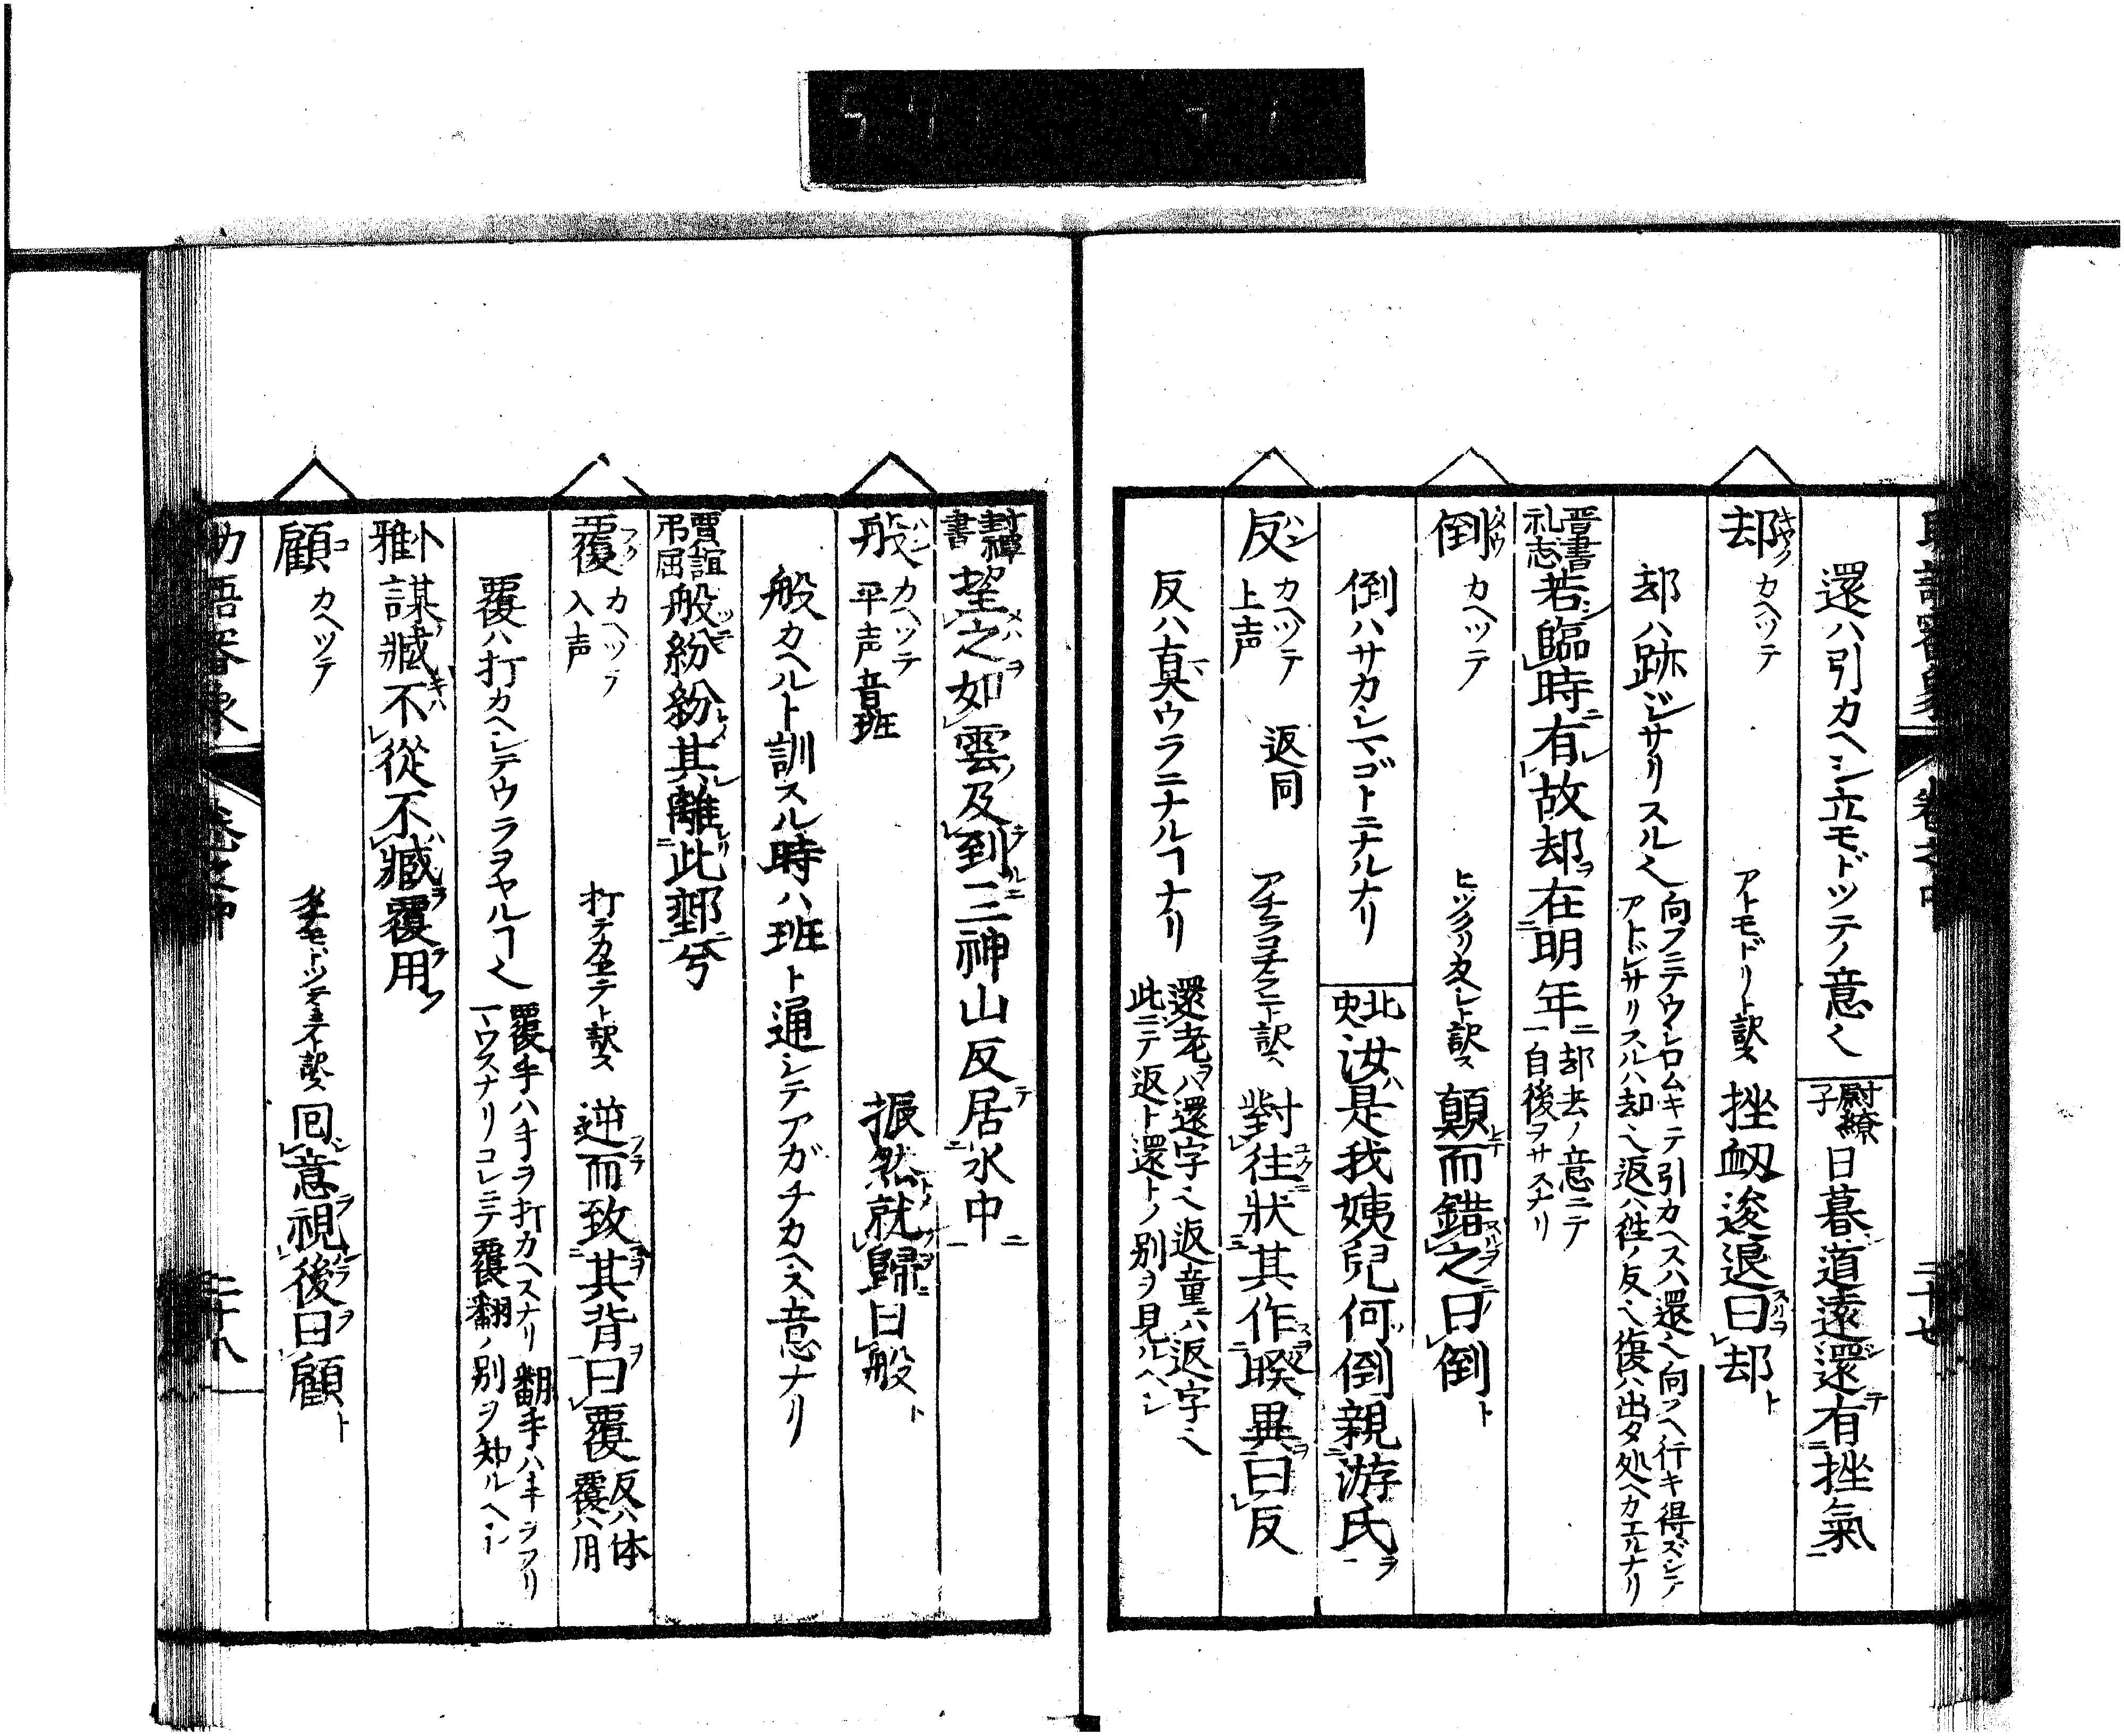 還ハ引カヘシ立モドツテノ意く 尉繚子 日暮道遠還有挫氣
却 キヤク カヘツテ アトモドリト訳ス 挫衂逡退曰却
却ハ跡ジサリスルく 向フニテウシロムキテ引カヘスハ還く向フヘ行キ得ズシテ
アトジサリスルハ却く返ハ往ノ反く復ハ出タ処ヘカエルナリ
晋書礼志 若臨時有故却在明年 却去ノ意ニテ
自後ヲサスナリ
倒 タウ カヘツテ ヒツクリタシト訳ス 顛而錯之曰倒
倒ハサカシマゴトニナルナリ 北史 汝是我姨兒何倒親游氏
反 ハン カヘツテ 上声 返同 アチラコチラニト訳ス 對往狀其作暌異曰反
反ハ真ウラニナルヿナリ 還老ハ還字く返童ハ返字く
此ニテ返ト還トノ別ヲ見ルヘシ
封禅書 望之如雲及到三神山反居水中
般 ハン カヘツテ 平声音班 振然就歸曰般
般カヘルト訓スル時ハ班ト通シテアガチカヘス意ナリ
賈誼弔屈 般紛紛其離此郵兮
覆 フク カヘツテ 入声 打テカヱテト訳ス 逆而致其背曰覆 反ハ体
覆ハ用
覆ハ打カヘシテウラヲヤルヿく 覆手ハ手ヲ打カヘスナリ翻手ハキラフリ
一ウスナリコレニテ覆翻ノ別ヲ知ルヘシ
小雅 謀臧不從不臧覆用
顧 コ カヘツテ 訳ス 回意視後曰顧
助語審象 二十八